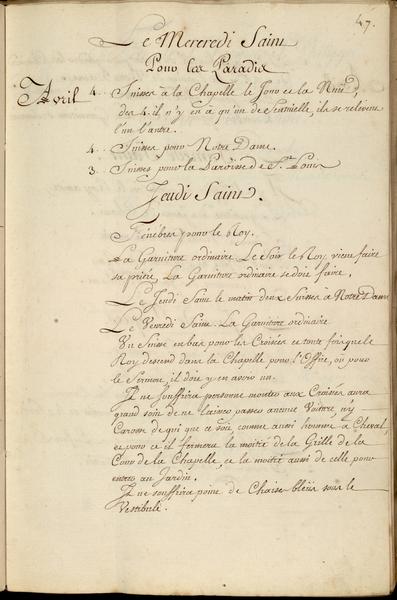 47.
Le Mercredi Saint
Pour les Paradis
Avril 4. Suisses à la Chapelle le Jour et la Nuit,
des 4. il n'y en à qu'un de Sentinelle, ils se relevent
l'un l'autre.
4. Suisses pour Notre Dame.
3. Suisses pour la Paroisse de St. Louis
Jeudi Saint.
Ténébres pour le Roy.
La Garniture ordinaire. Le Soir le Roy vient faire
sa prière, La Garniture ordinaire se doit faire.
Le Jeudi Saint le matin deux Suisses à Notre Dame
Le Vendredi Saint. La Garniture ordinaire
Un Suisse en bas pour les Croisées et toute fois que le
Roy descend dans la Chapelle pour l'Office, où pour
le Sermon, il doit y en avoir un.
Il ne souffrira personne monter aux Croisées aura
grand soin de ne laisser passer aucune Voiture, n'y
Carosse de qui que ce soit comme aussi homme à Cheval,
et pour ce il fermera la moitié de la Grille de la
Cour de la Chapelle, et la moitié aussi de celle pour
entrer au Jardin.
Il ne souffrira point de Chaise bleües sous le
Vestibule.